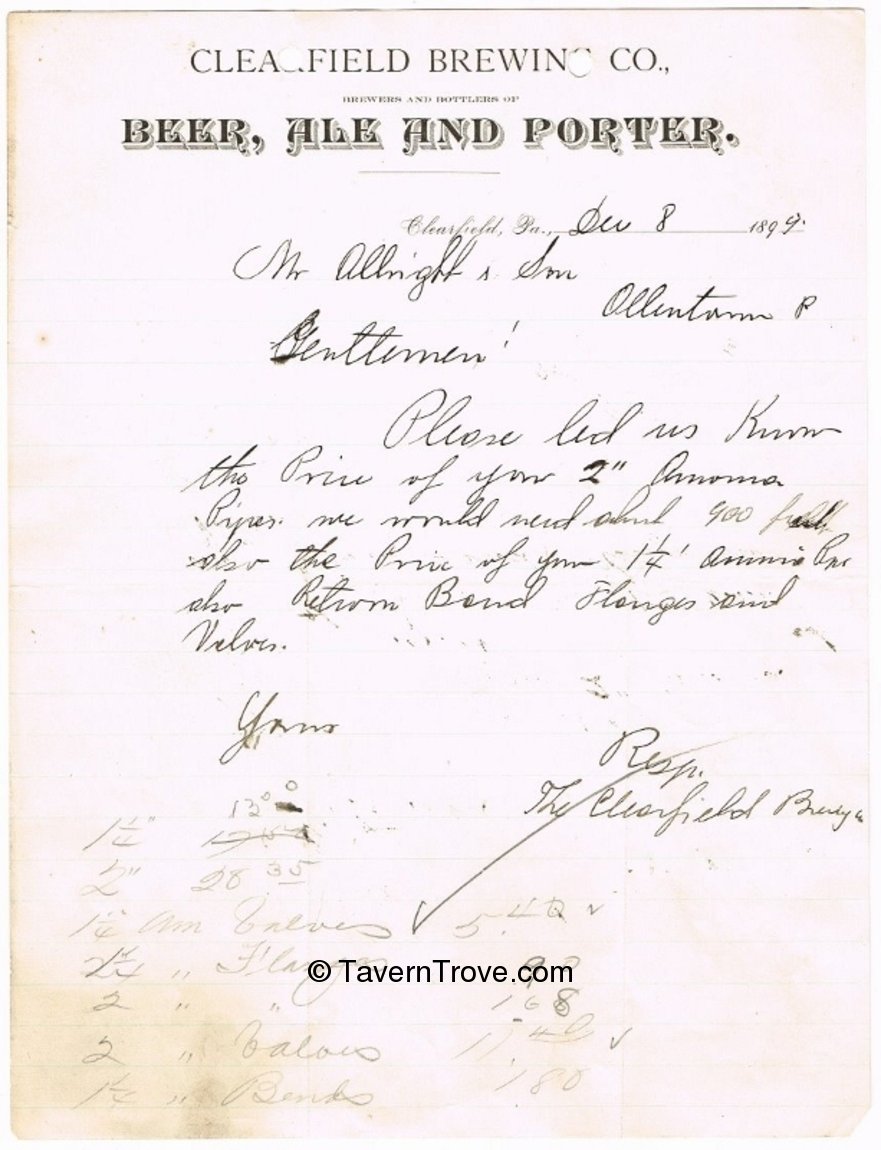 CLEARFIELD BREWING CO.,
BREWERS AND BOTTLERS OF
BEER, ALE AND PORTER.
Clearfield, Pa., Dec 8 1899.
Mr Albright & Son
Allentown P
Gentlemen!
Please led us Know
the Price of your 2" Amonia
Pipes. we would need about 900
also the Price of your 1¼'
also Return Bend Flanges and
Valves.
Yours
Resp.
The Clearfield
13 00
1¼"
2" 28 35
1¼ Am Valves 5.40 ✓
" Flanges
2 " " 168
2 " Valves 11.40 ✓
1¼ " Bends 180
© TavernTrove.com